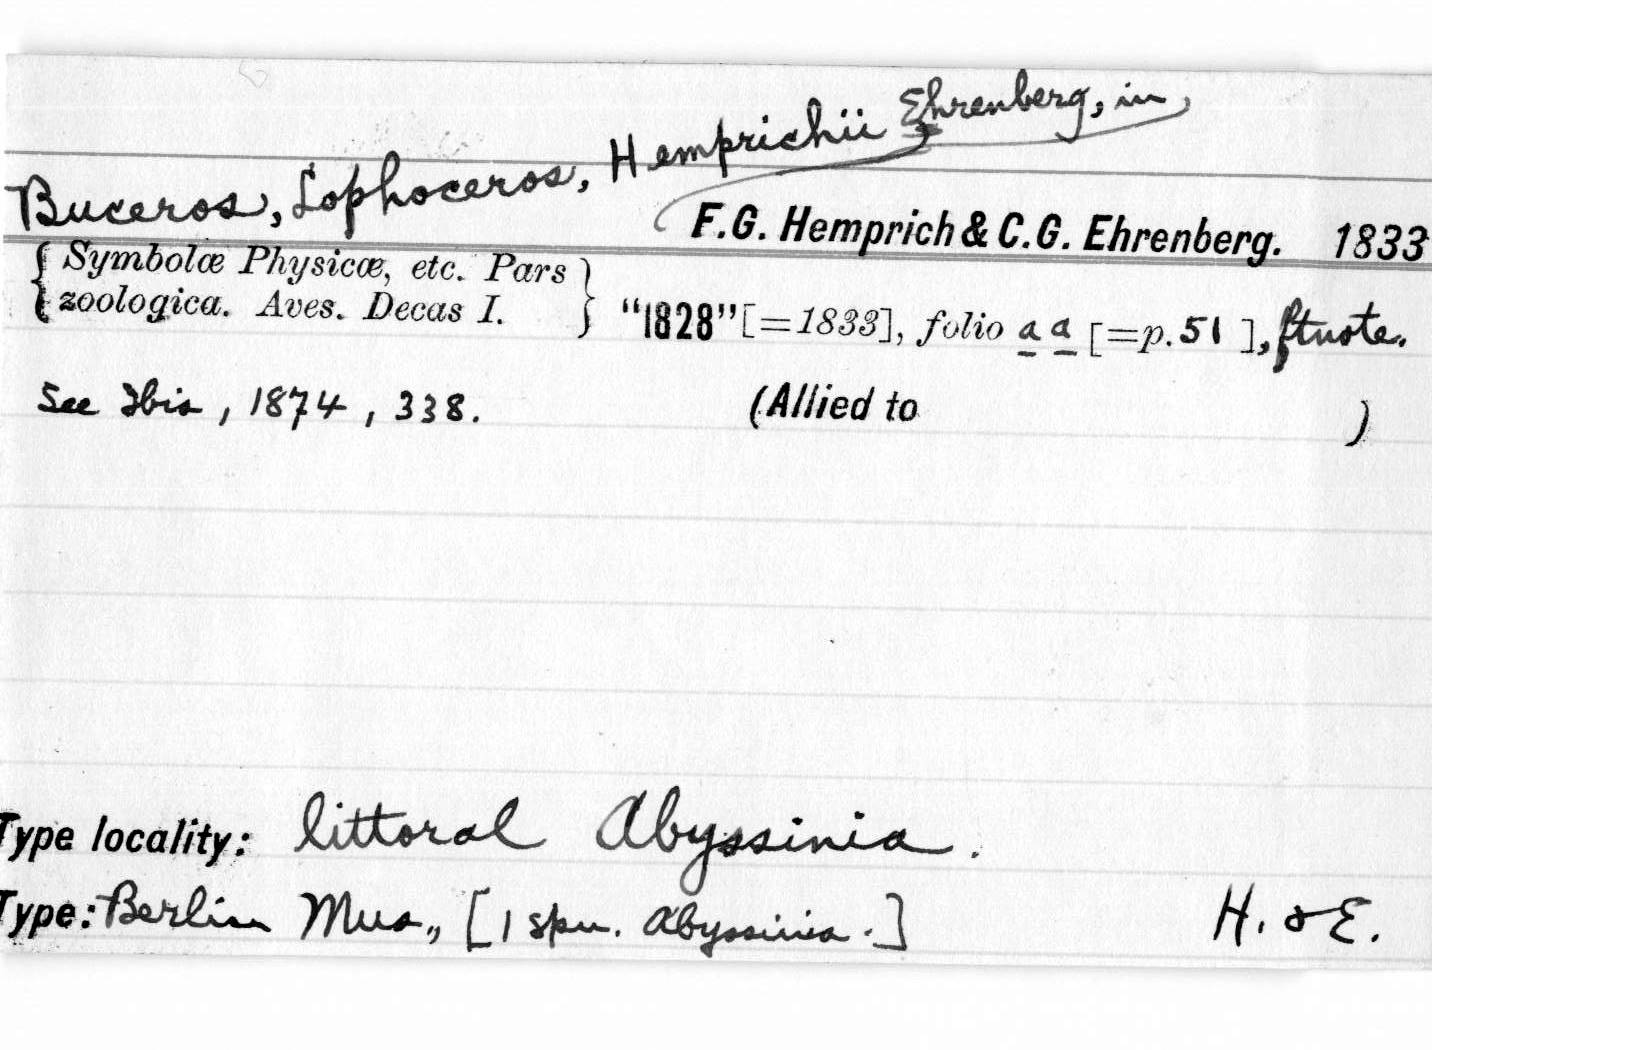 Buceros, Lophoceros, Hemprichii Ehrenberg, in,
F.G. Hemprich & C.G. Ehrenberg. 1833
Symbolæ Physicæ, etc. Pars
zoologica. Aves. Decas I. "1828" [=1833], folio a a [=p. 51 ], ftnote.
See Ibis, 1874, 338. (Allied to )
Type locality: littoral Abyssinia.
Type: Berlin Mus., [1 spn. Abyssinia.] H. & E.